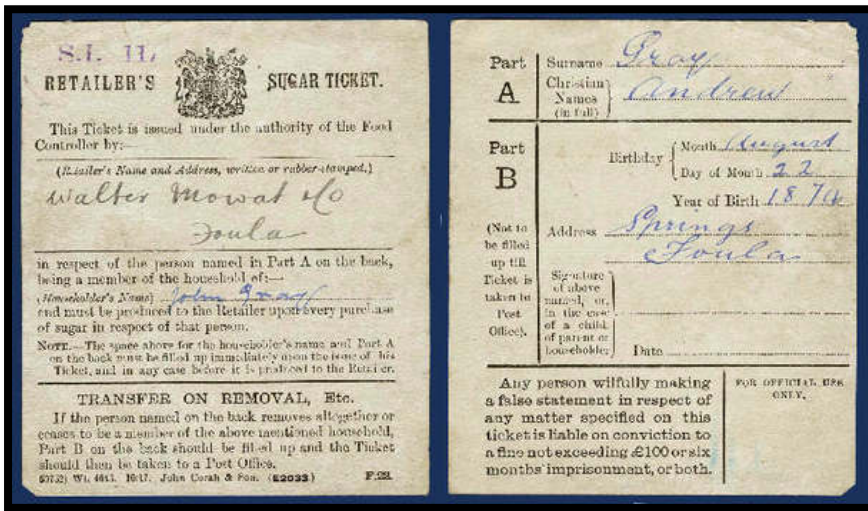 S.L. 11/
RETAILER'S SUGAR TICKET.
This Ticket is issued under the authority of the Food
Controller by:—
(Retailer's Name and Address, written or rubber-stamped.)
Walter Mowat & Co
Foula
in respect of the person named in Part A on the back,
being a member of the household of:—
(Householder's Name) John Gray
and must be produced to the Retailer upon every purchase
of sugar in respect of that person.
NOTE.—The space above for the householder's name and Part A
on the back must be filled up immediately upon the issue of this
Ticket, and in any case before it is produced to the Retailer.
TRANSFER ON REMOVAL, Etc.
If the person named on the back removes altogether or
ceases to be a member of the above mentioned household,
Part B on the back should be filled up and the Ticket
should then be taken to a Post Office.
Wt. 10/17. John Corah & Son. (E2033) F.22.
Part
A
Surname Gray
Christian
Names
(in full) Andrew
Part
B
(Not to
be filled
up till
Ticket is
taken to
Post
Office).
Birthday
Month August
Day of Month 22
Year of Birth 1874
Address Springs
Foula
Signature
of above
named, or,
in the case
of a child
of parent or
householder
Date
Any person wilfully making
a false statement in respect of
any matter specified on this
ticket is liable on conviction to
a fine not exceeding £100 or six
months' imprisonment, or both.
FOR OFFICIAL USE
ONLY.